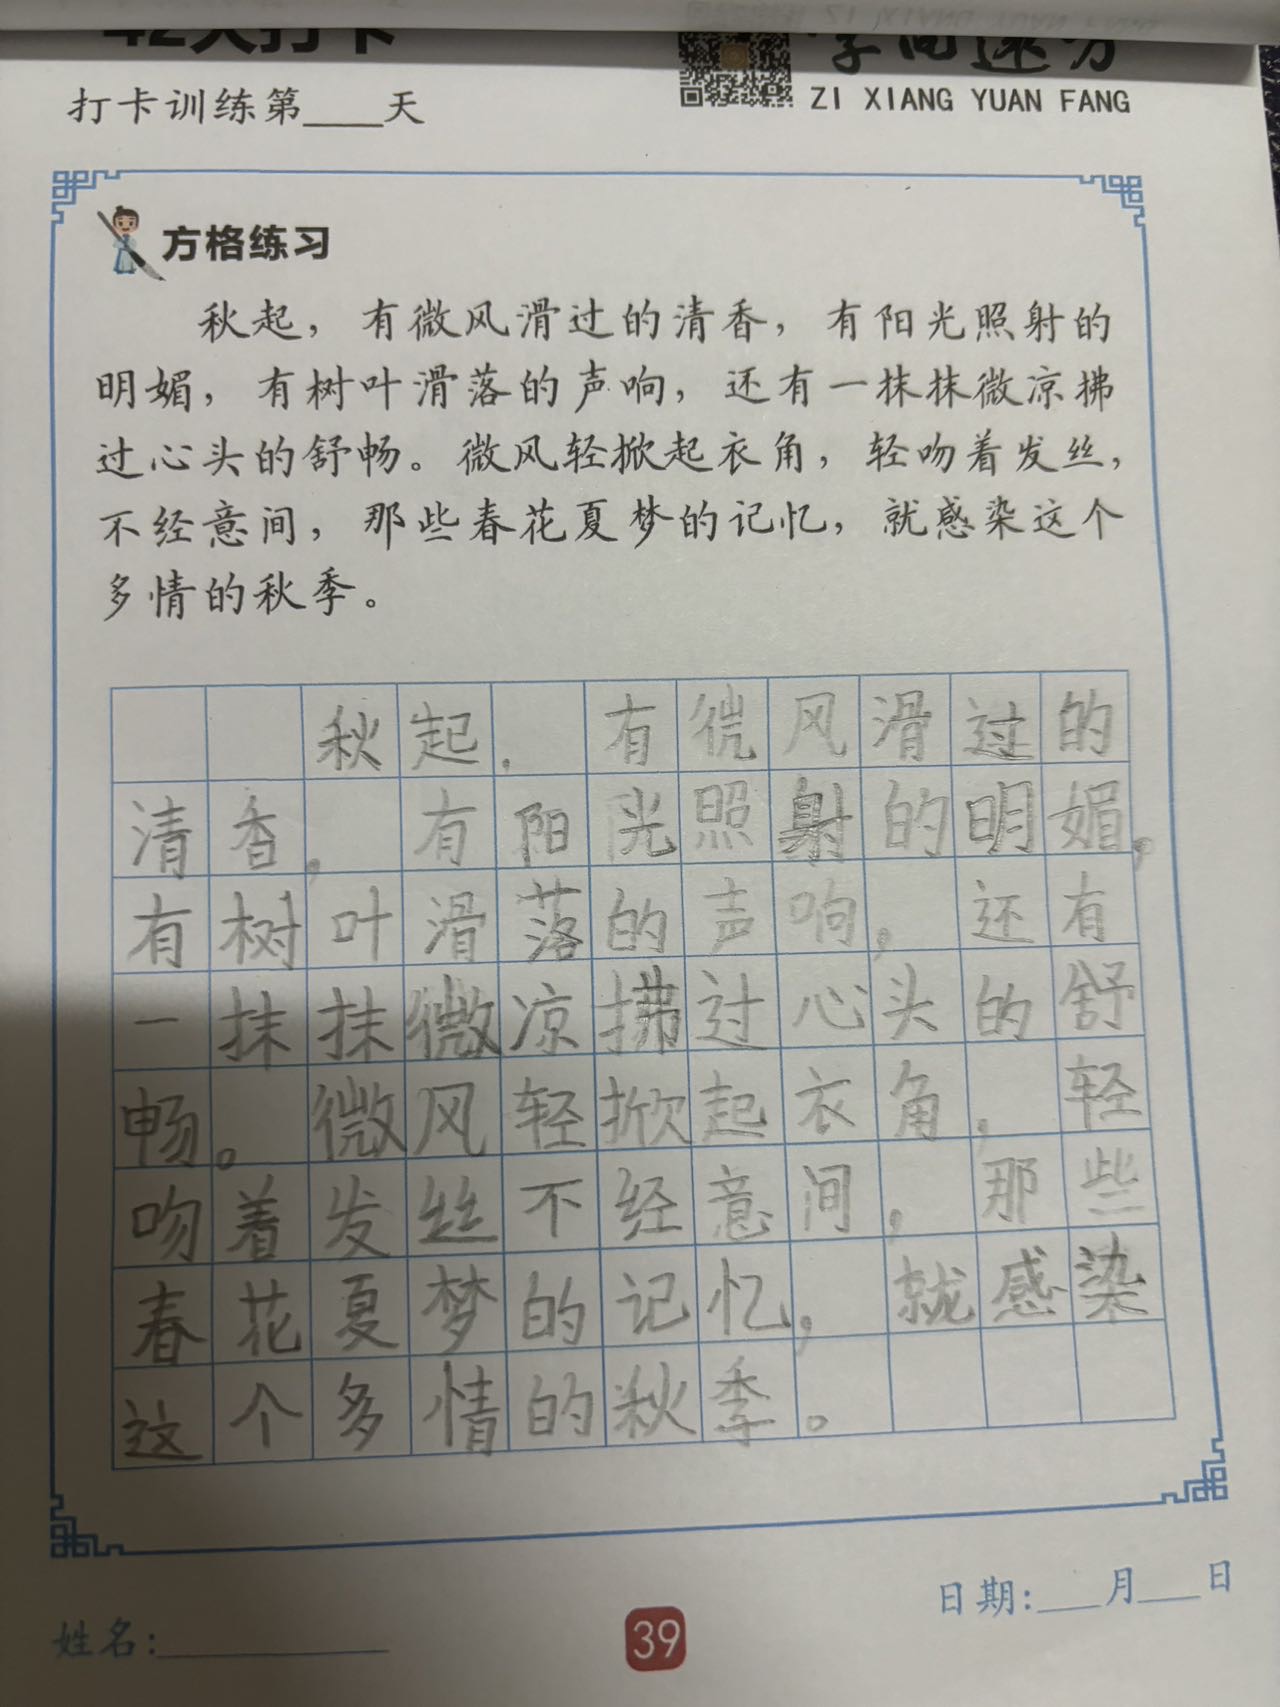 42天打卡
ZI XIANG YUAN FANG
打卡训练第____天
方格练习
秋起，有微风滑过的清香，有阳光照射的
明媚，有树叶滑落的声响，还有一抹抹微凉拂
过心头的舒畅。微风轻掀起衣角，轻吻着发丝，
不经意间，那些春花夏梦的记忆，就感染这个
多情的秋季。
秋起．有微风滑过的
清香，有阳光照射的明媚，
有树叶滑落的声响，还有
一抹抹微凉拂过心头的舒
畅。微风轻掀起衣角，轻
吻着发丝不经意间，那些
春花夏梦的记忆，就感染
这个多情的秋季。
日期:___月___日
姓名:___________
39